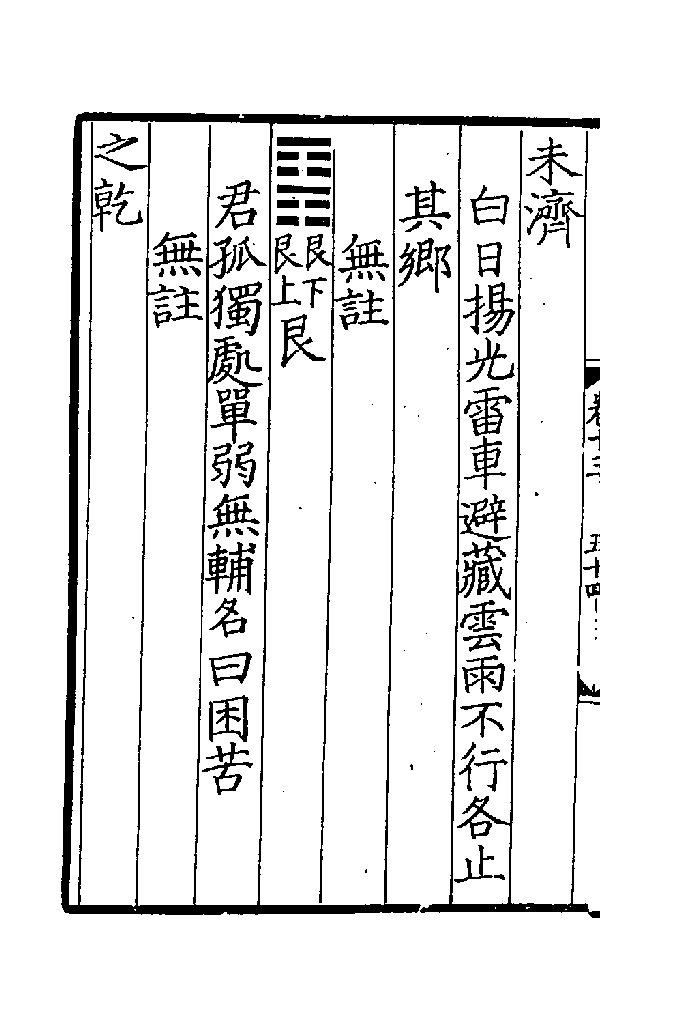 未濟
白日揚光雷車避藏雲雨不行各止
其鄉
無註
䷳艮下艮上艮
君孤獨處單弱無輔名曰困苦
無註
之乾